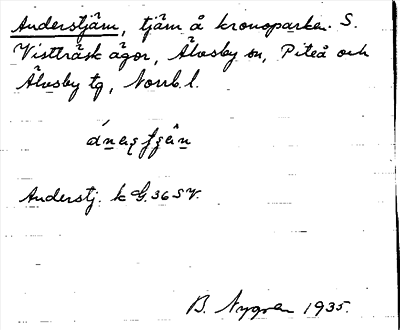 Anderstjärn, tjärn å kronoparken S.
Vistträsk ägor, Älvsby sn, Piteå och
Älvsby tg, Norrb. l.
Anderstj. k G.36 SV.
B. Nygren 1935.